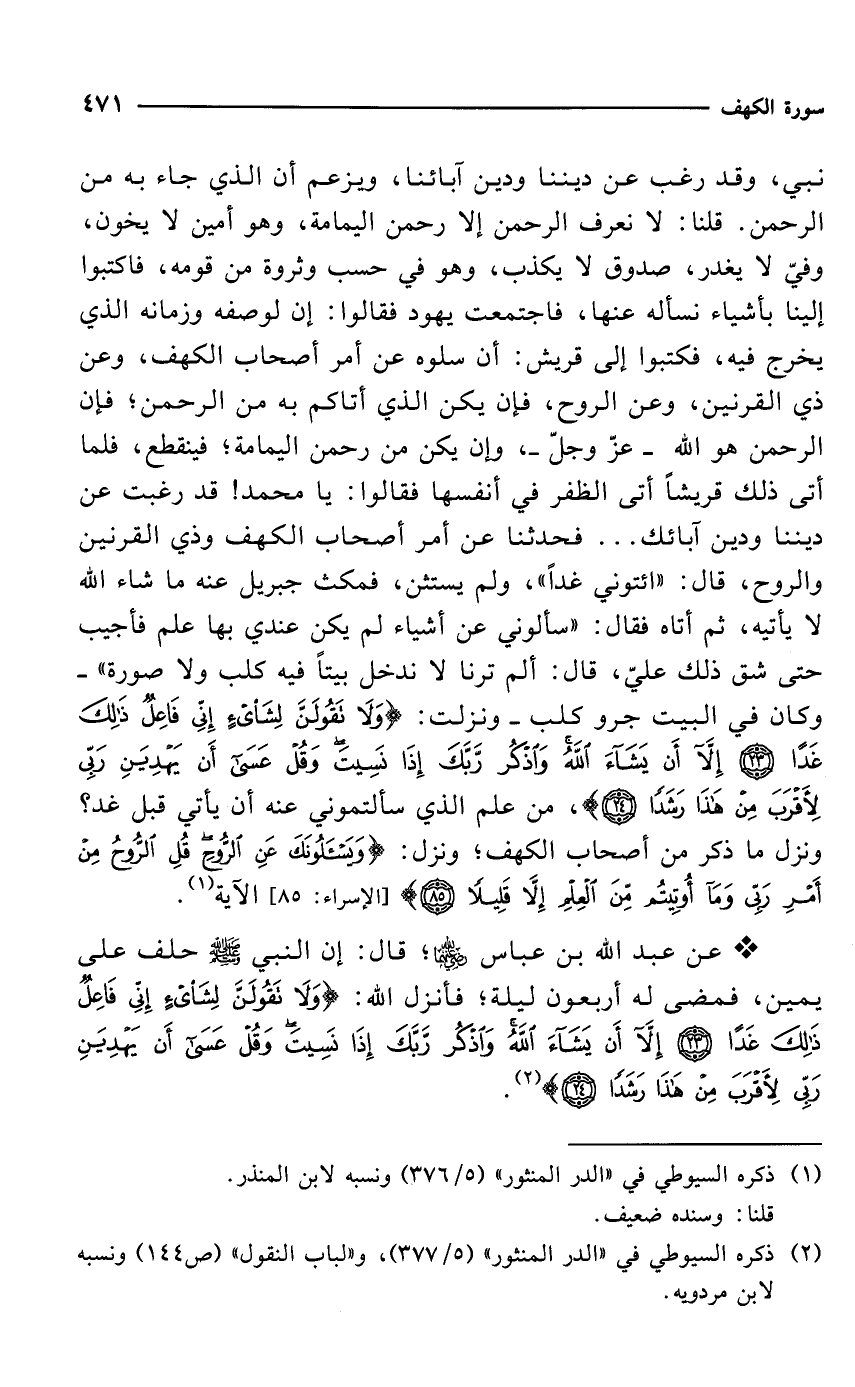 سورة الكهف ٤٧١
نبي، وقد رغب عن ديننا ودين آبائنا، ويزعم أن الذي جاء به من
الرحمن. قلنا: لا نعرف الرحمن إلا رحمن اليمامة، وهو أمين لا يخون،
وفيّ لا يغدر، صدوق لا يكذب، وهو في حسب وثروة من قومه، فاكتبوا
إلينا بأشياء نسأله عنها، فاجتمعت يهود فقالوا: إن لوصفه وزمانه الذي
يخرج فيه، فكتبوا إلى قريش: أن سلوه عن أمر أصحاب الكهف، وعن
ذي القرنين، وعن الروح، فإن يكن الذي أتاكم به من الرحمن؛ فإن
الرحمن هو الله ـ عزّ وجلّ ـ، وإن يكن من رحمن اليمامة؛ فينقطع، فلما
أتى ذلك قريشاً أتى الظفر في أنفسها فقالوا: يا محمد! قد رغبت عن
ديننا ودين آبائك... فحدثنا عن أمر أصحاب الكهف وذي القرنين
والروح، قال: «ائتوني غداً»، ولم يستثن، فمكث جبريل عنه ما شاء الله
لا يأتيه، ثم أتاه فقال: «سألوني عن أشياء لم يكن عندي بها علم فأجيب
حتى شق ذلك عليّ، قال: ألم ترنا لا ندخل بيتاً فيه كلب ولا صورة» ـ
وكان في البيت جرو كلب ـ ونزلت: ﴿وَلَا نَقُولَنَّ لِشَاْىْءٍ إِنِّي فَاعِلٌ ذَٰلِكَ
غَدًا ﴿٢٣﴾ إِلَّآ أَن يَشَآءَ ٱللَّهُ وَٱذْكُر رَّبَّكَ إِذَا نَسِيتَ وَقُلْ عَسَىٰٓ أَن يَهْدِيَنِ رَبِّي
لِأَقْرَبَ مِنْ هَٰذَا رَشَدًا ﴿٢٤﴾﴾، من علم الذي سألتموني عنه أن يأتي قبل غد؟
ونزل ما ذكر من أصحاب الكهف؛ ونزل: ﴿وَيَسْـَٔلُونَكَ عَنِ ٱلرُّوحِ قُلِ ٱلرُّوحُ مِنْ
أَمْرِ رَبِّي وَمَآ أُوتِيتُم مِّنَ ٱلْعِلْمِ إِلَّا قَلِيلًا ﴿٨٥﴾﴾ [الإسراء: ٨٥] الآية(١).
❖ عن عبد الله بن عباس رضي الله عنهما؛ قال: إن النبي ﷺ حلف على
يمين، فمضى له أربعون ليلة؛ فأنزل الله: ﴿وَلَا نَقُولَنَّ لِشَاْىْءٍ إِنِّي فَاعِلٌ
ذَٰلِكَ غَدًا ﴿٢٣﴾ إِلَّآ أَن يَشَآءَ ٱللَّهُ وَٱذْكُر رَّبَّكَ إِذَا نَسِيتَ وَقُلْ عَسَىٰٓ أَن يَهْدِيَنِ
رَبِّي لِأَقْرَبَ مِنْ هَٰذَا رَشَدًا ﴿٢٤﴾﴾(٢).
(١) ذكره السيوطي في «الدر المنثور» (٥/ ٣٧٦) ونسبه لابن المنذر.
قلنا: وسنده ضعيف.
(٢) ذكره السيوطي في «الدر المنثور» (٥/ ٣٧٧)، و«لباب النقول» (ص١٤٤) ونسبه
لابن مردويه.